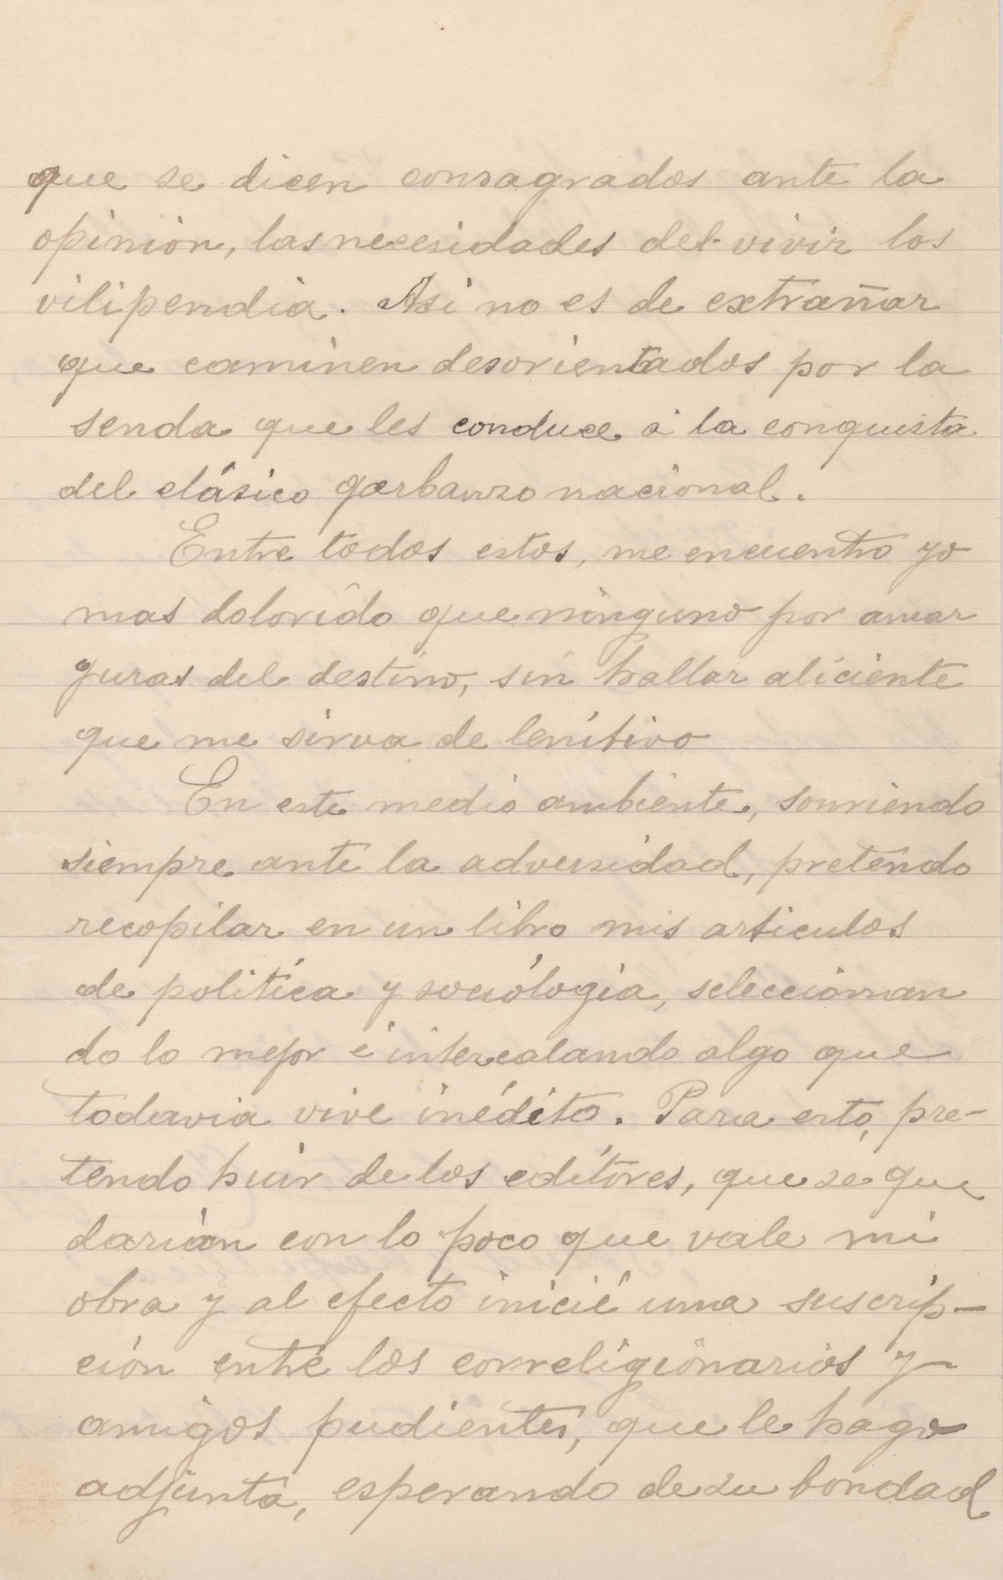 que se dicen consagrados ante la
opinión, las necesidades del vivir los
vilipendia. Asi no es de extrañar
que caminen desorientados por la
senda que les conduce á la conquista
del clásico garbanzo nacional.
Entre todos estos, me encuentro yo
mas dolorido que ninguno por amar
guras del destino, sin hallar aliciente
que me sirva de lenitivo
En este medio ambiente, sonriendo
siempre ante la adversidad, pretendo
recopilar en un libro mis articulos
de politica y sociólogia, seleccionan
do lo mejor é intercalando algo que
todavia vive inédito. Para esto, pre-
tendo huir de los editores, que se que
darian con lo poco que vale mi
obra y al efecto inicié una suscrip-
ción entre los correligionarios y
amigos pudientes, que le hago
adjunta, esperando de su bondad